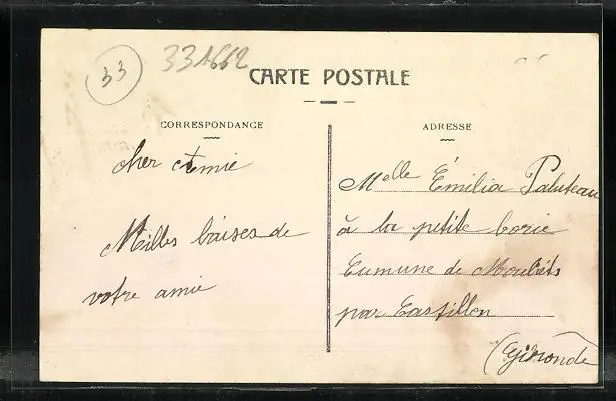 33
331662
CARTE POSTALE
CORRESPONDANCE
cher Amie
Milles baises de
votre amie
ADRESSE
Melle Émilia Paluteau
à la petite borie
Cumune de Mouliets
par Castillon
(Gironde